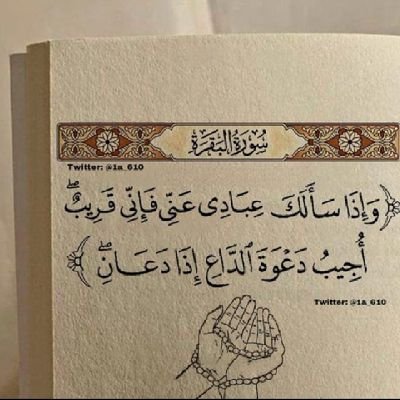 سُورَةُ البَقَرَةِ
Twitter: @1a_610
﴿وَإِذَا سَأَلَكَ عِبَادِى عَنِّى فَإِنِّى قَرِيبٌۖ
أُجِيبُ دَعْوَةَ ٱلدَّاعِ إِذَا دَعَانِۖ﴾
Twitter: @1a_610